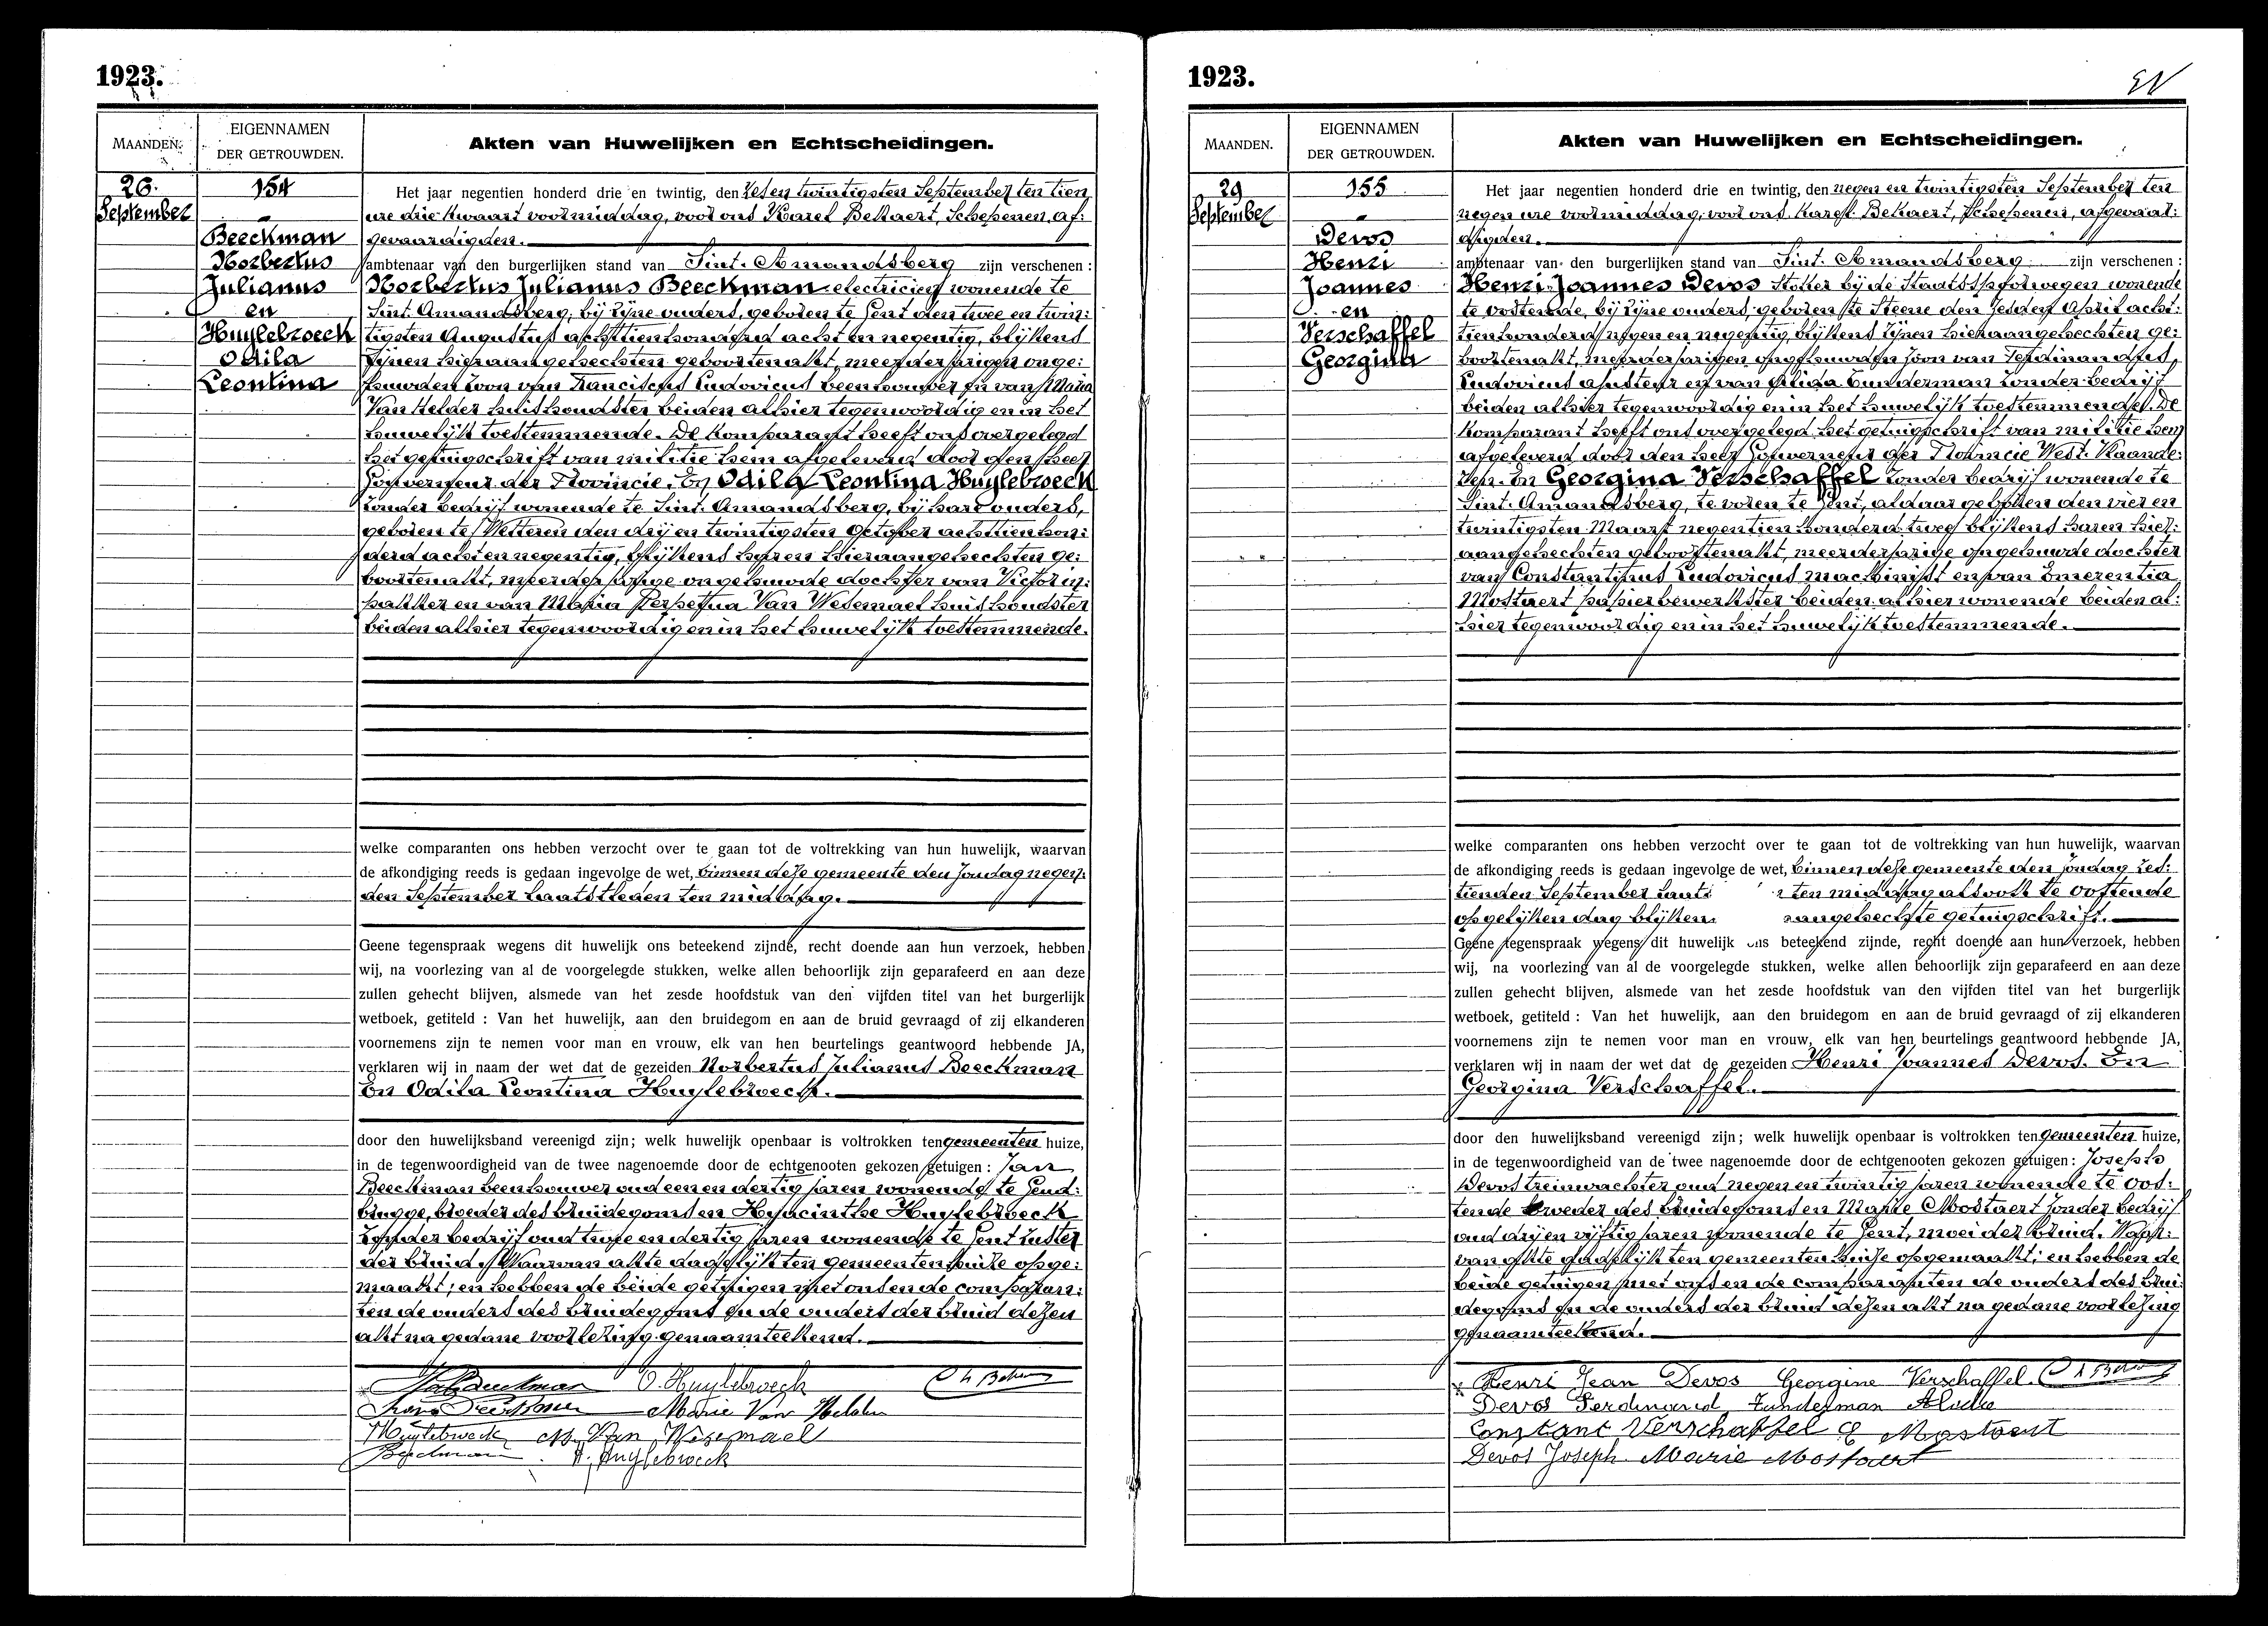 1923.
MAANDEN.
EIGENNAMEN
DER GETROUWDEN.
Akten van Huwelijken en Echtscheidingen.
26.
September
154
Beeckman
Norbertus
Julianus
en
Huylebroeck
Odila
Leontina
Het jaar negentien honderd drie en twintig, den zes en twintigsten September ten tien
ure drie kwaart voormiddag, voor ons Karel Bekaert, Schepenen, af:
gevaardigden.
ambtenaar van den burgerlijken stand van Sint. Amandsberg zijn verschenen :
Norbertus Julianus Beeckman electricien wonende te
Sint. Amandsberg, bij zijne ouders, geboren te Gent den twee en twin:
tigsten Augustus achttienhonderd acht en negentig, blijkens
zijnen hieraangehechten geboortenakt, meerderjarigen onge:
huwden zoon van Franciscus Ludovicus beenhouwer en van Maria
Van Helder huishoudster beiden alhier tegenwoordig en in het
huwelijk toestemmende. De komparant heeft ons overgelegd
het getuigschrift van militie hem afgeleverd door den heer
Gouverneur der Provincie. En Odila Leontina Huylebroeck
zonder bedrijf wonende te Sint. Amandsberg, bij hare ouders,
geboren te Wetteren den drij en twintigsten October achttienhon:
derd acht en negentig, blijkens haren hieraangehechten ge:
boortenakt, meerderjarige ongehuwde dochter van Victor in:
pakker en van Maria Perpetua Van Wesemael huishoudster
beiden alhier tegenwoordig en in het huwelijk toestemmende.
welke comparanten ons hebben verzocht over te gaan tot de voltrekking van hun huwelijk, waarvan
de afkondiging reeds is gedaan ingevolge de wet, binnen deze gemeente den zondag negen:
den September laatstleden ten middag.
Geene tegenspraak wegens dit huwelijk ons beteekend zijnde, recht doende aan hun verzoek, hebben
wij, na voorlezing van al de voorgelegde stukken, welke allen behoorlijk zijn geparafeerd en aan deze
zullen gehecht blijven, alsmede van het zesde hoofdstuk van den vijfden titel van het burgerlijk
wetboek, getiteld : Van het huwelijk, aan den bruidegom en aan de bruid gevraagd of zij elkanderen
voornemens zijn te nemen voor man en vrouw, elk van hen beurtelings geantwoord hebbende JA,
verklaren wij in naam der wet dat de gezeiden Norbertus Julianus Beeckman
En Odila Leontina Huylebroeck.
door den huwelijksband vereenigd zijn; welk huwelijk openbaar is voltrokken ten gemeenten huize,
in de tegenwoordigheid van de twee nagenoemde door de echtgenooten gekozen getuigen : Jan
Beeckman beenhouwer oud een en dertig jaren wonende te Gend:
brugge, broeder des bruidegoms en Hyacinthe Huylebroeck
zonder bedrijf oud twee en dertig jaren wonende te Gent zuster
der bruid. Waarvan akte dadelijk ten gemeenten huize opge:
maakt; en hebben de beide getuigen met ons en de comparan:
ten de ouders des bruidegoms en de ouders der bruid dezen
akt na gedane voorlezing genaamteekend.
O. Huylebroeck
Marie Van Helder
Huylebroeck M. Van Wesemael
Beeckman H. Huylebroeck
1923.
MAANDEN.
EIGENNAMEN
DER GETROUWDEN.
Akten van Huwelijken en Echtscheidingen.
29
September
155
Devos
Henri
Joannes
en
Verschaffel
Georgina
Het jaar negentien honderd drie en twintig, den negen en twintigsten September ten
negen ure voormiddag, voor ons Karel Bekaert, Schepenen, afgevaar:
digden.
ambtenaar van den burgerlijken stand van Sint. Amandsberg zijn verschenen :
Henri Joannes Devos stoker bij de Staatsspoorwegen wonende
te oostende, bij zijne ouders, geboren te Steene den zesden April acht:
tienhonderd negen en negentig, blijkens zijnen hieraangehechten ge:
boortenakt, meerderjarigen ongehuwden zoon van Ferdinandus,
Ludovicus ajusteur en van Alida Tunderman zonder bedrijf
beiden alhier tegenwoordig en in het huwelijk toestemmende. De
komparant heeft ons overgelegd het getuigschrift van militie hem
afgeleverd door den heer Gouverneur der Provincie West. Vlaande:
ren. En Georgina Verschaffel zonder bedrijf wonende te
Sint. Amandsberg, te voren te Gent, aldaar geboren den vier en
twintigsten Maart negentienhonderd twee blijkens haren hier:
aangehechten geboortenakt, meerderjarige ongehuwde dochter
van Constantinus Ludovicus machinist en van Emerentia
Mostaert papierbewerkster beiden alhier wonende beiden al:
hier tegenwoordig en in het huwelijk toestemmende.
welke comparanten ons hebben verzocht over te gaan tot de voltrekking van hun huwelijk, waarvan
de afkondiging reeds is gedaan ingevolge de wet, binnen deze gemeente den zondag zes:
tienden September ten middag alsook te oostende
op gelijken dag blijkens aangehechte getuigschrift.
Geene tegenspraak wegens dit huwelijk ons beteekend zijnde, recht doende aan hun verzoek, hebben
wij, na voorlezing van al de voorgelegde stukken, welke allen behoorlijk zijn geparafeerd en aan deze
zullen gehecht blijven, alsmede van het zesde hoofdstuk van den vijfden titel van het burgerlijk
wetboek, getiteld : Van het huwelijk, aan den bruidegom en aan de bruid gevraagd of zij elkanderen
voornemens zijn te nemen voor man en vrouw, elk van hen beurtelings geantwoord hebbende JA,
verklaren wij in naam der wet dat de gezeiden Henri Joannes Devos. En
Georgina Verschaffel.
door den huwelijksband vereenigd zijn; welk huwelijk openbaar is voltrokken ten gemeenten huize,
in de tegenwoordigheid van de twee nagenoemde door de echtgenooten gekozen getuigen : Joseph
Devos treinwachter oud negen en twintig jaren wonende te oos:
tende broeder des bruidegoms en Marie Mostaert zonder bedrijf
oud drij en vijftig jaren wonende te Gent, moei der bruid. Waar:
van akte dadelijk ten gemeenten huize opgemaakt; en hebben de
beide getuigen met ons en de comparanten de ouders des brui:
degoms en de ouders der bruid dezen akt na gedane voorlezing
genaamteekend.
Henri Jean Devos Georgine Verschaffel.
Devos Ferdinand Tunderman Alida
Constant Verschaffel E Mostaert
Devos Joseph Marie Mostaert